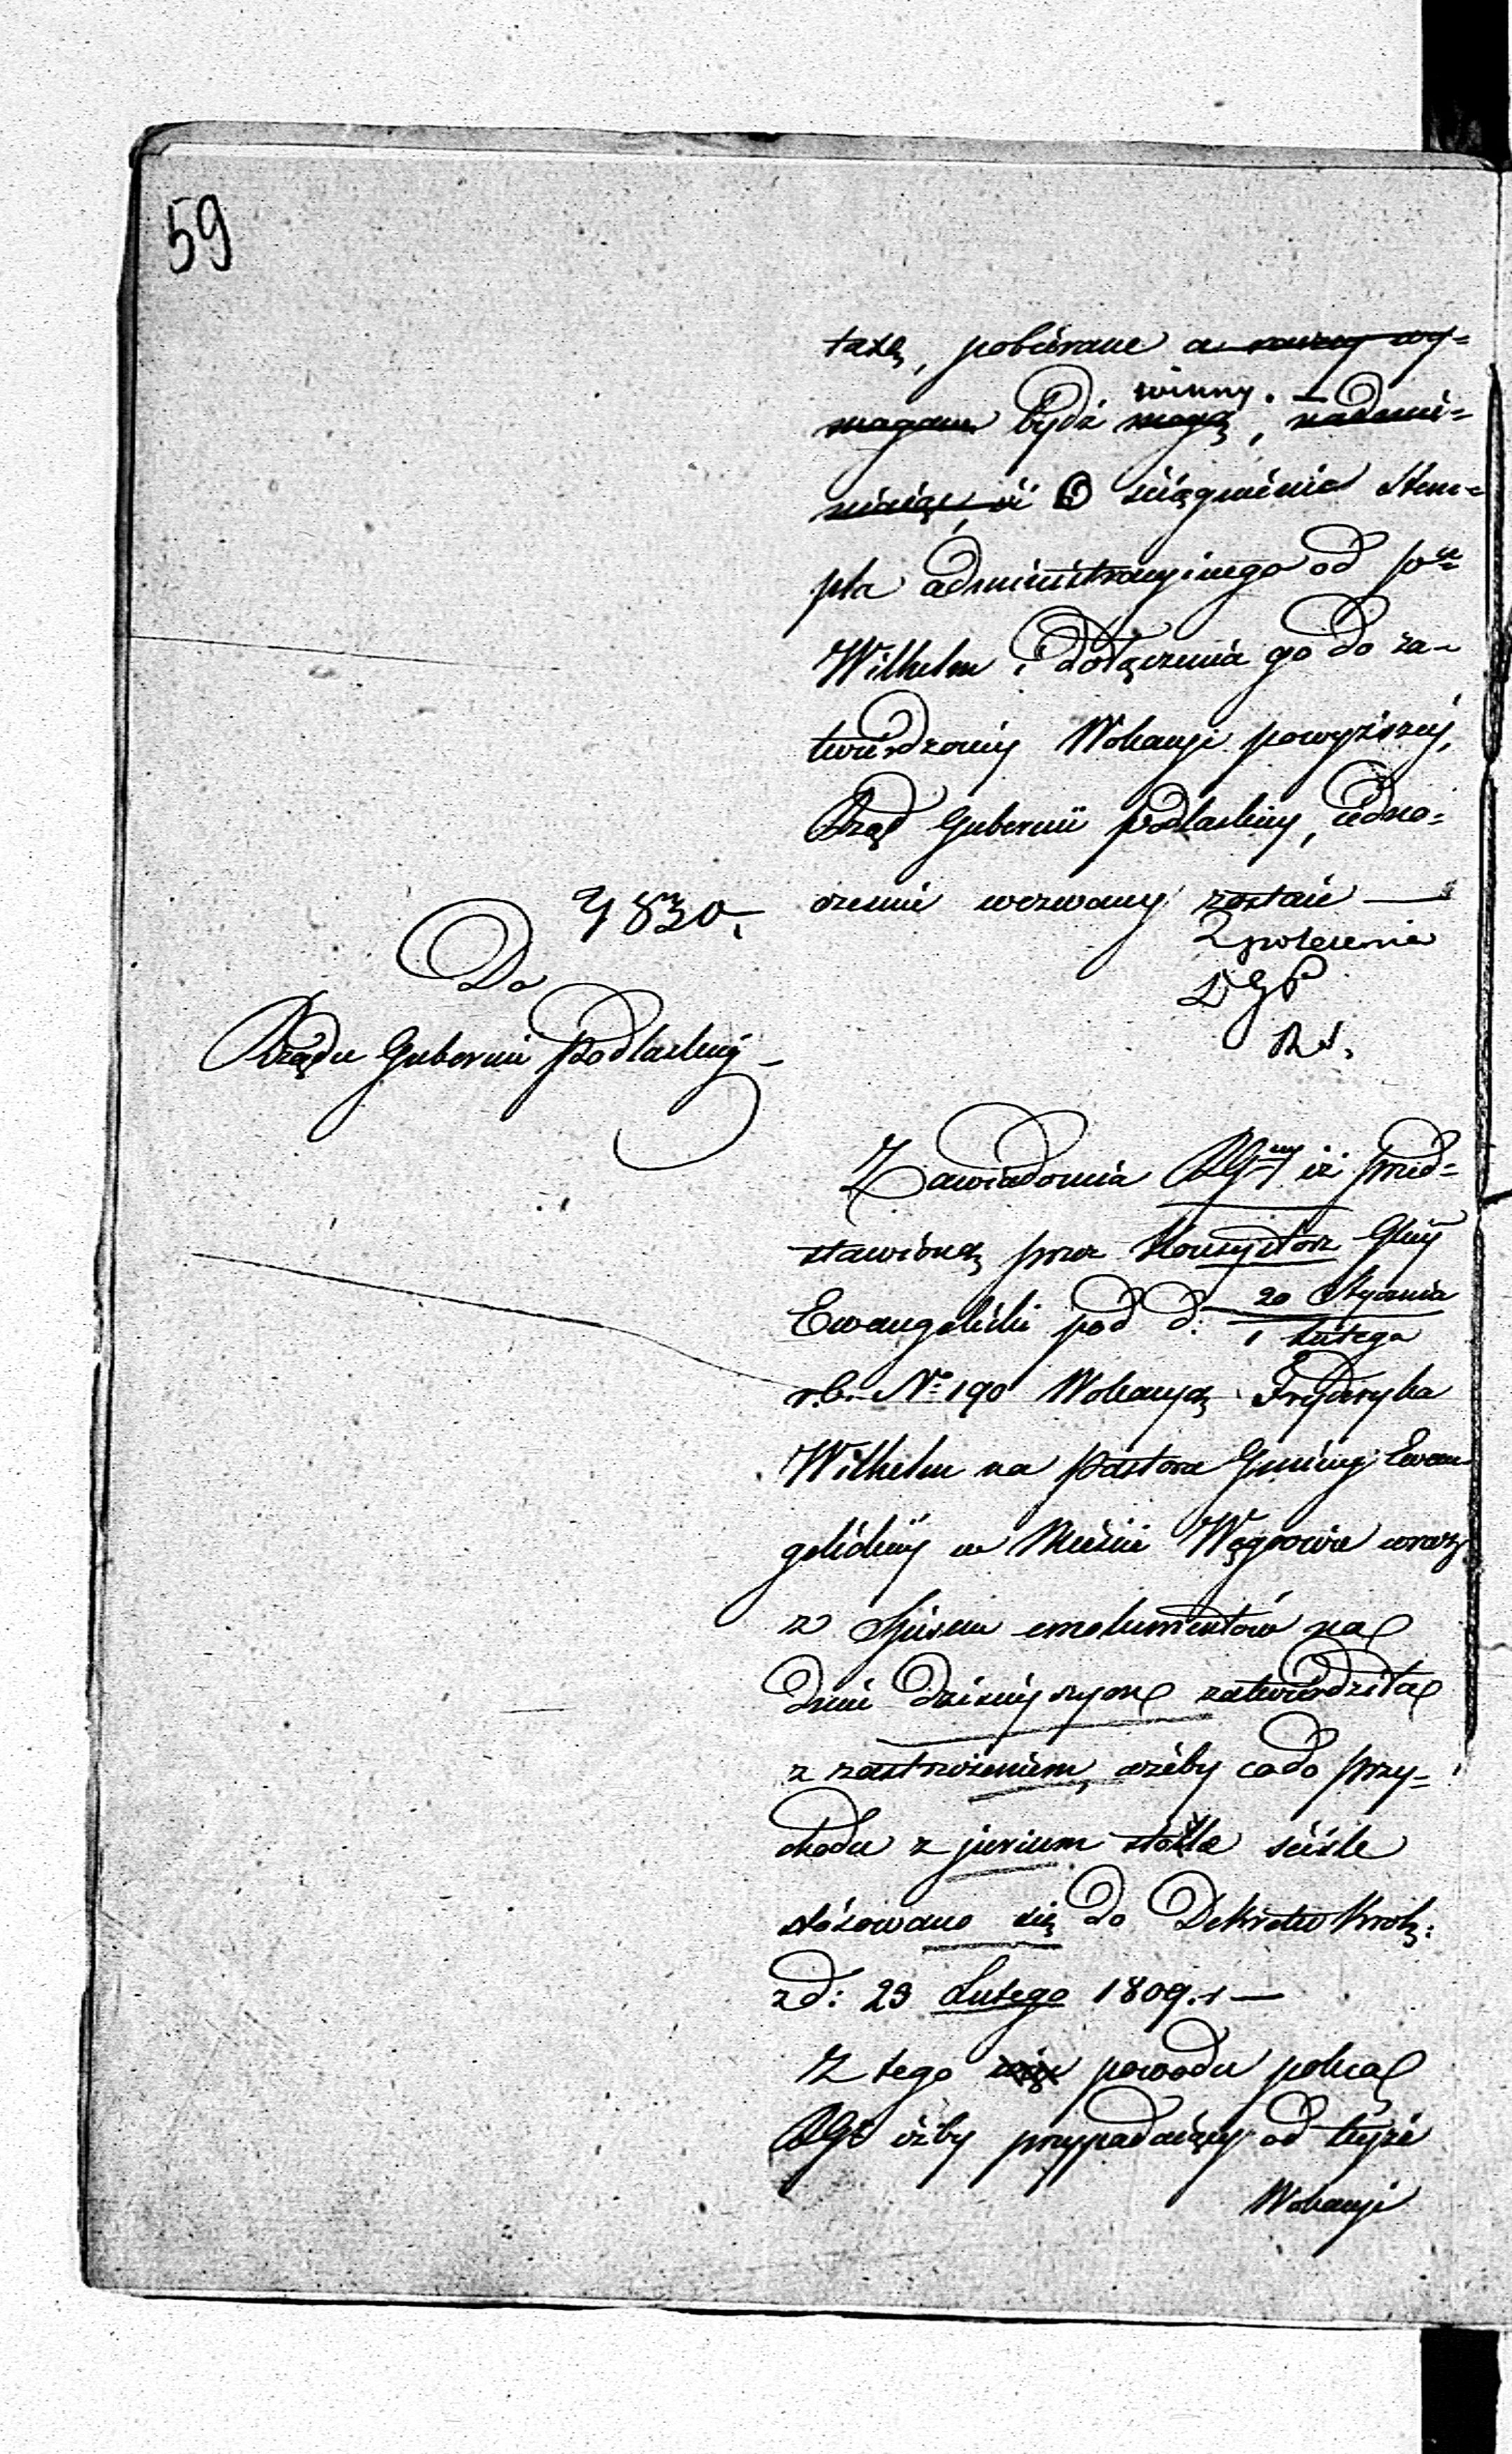 59
taxę, pobierane a raczej wy=
magane bydź mogą, nadmi=
winny. —
niaiąc, iż O ściągnienie Stem=
pla administracyinego od po
Wilhelm i dołączenia go do za-
twierdzoney Wokacyi powyższey,
Rząd Gubernii Podlaskiey, iedno=
cześnie wezwany zostaie —
Z polecenia
DGP
4830.
Do
Rządu Gubernii Podlaskiey
Zawiadomia RGny iż przed=
stawioną przez Konsystorz Glny
Ewangelicki pod d: 20 Stycznia
1 Lutego
r.b. No 190 Wokacyą Fryderyka
Wilhelm na Pastora Gminy Ewan
gelickiey w Mieście Węgrowie wraz
z Spisem emolumentów na
dniu dzisieyszym zatwierdziła
z zastrzeżeniem, ażeby co do przy=
chodu z jurium stolæ ściśle
stósowano się do Dekretu Król:
z d: 23 Lutego 1809. r —
Z tego więc powodu poleca
RGP iżby przypadaiący od teyże
Wokacyi